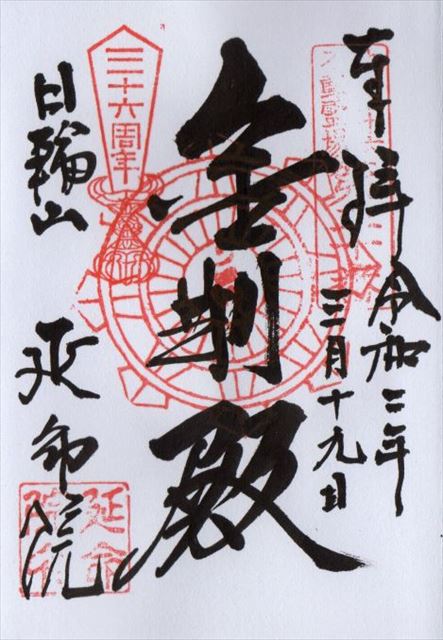 奉拝
令和二年
三月十九日
金剛殿
三十六周年
日輪山
延命院